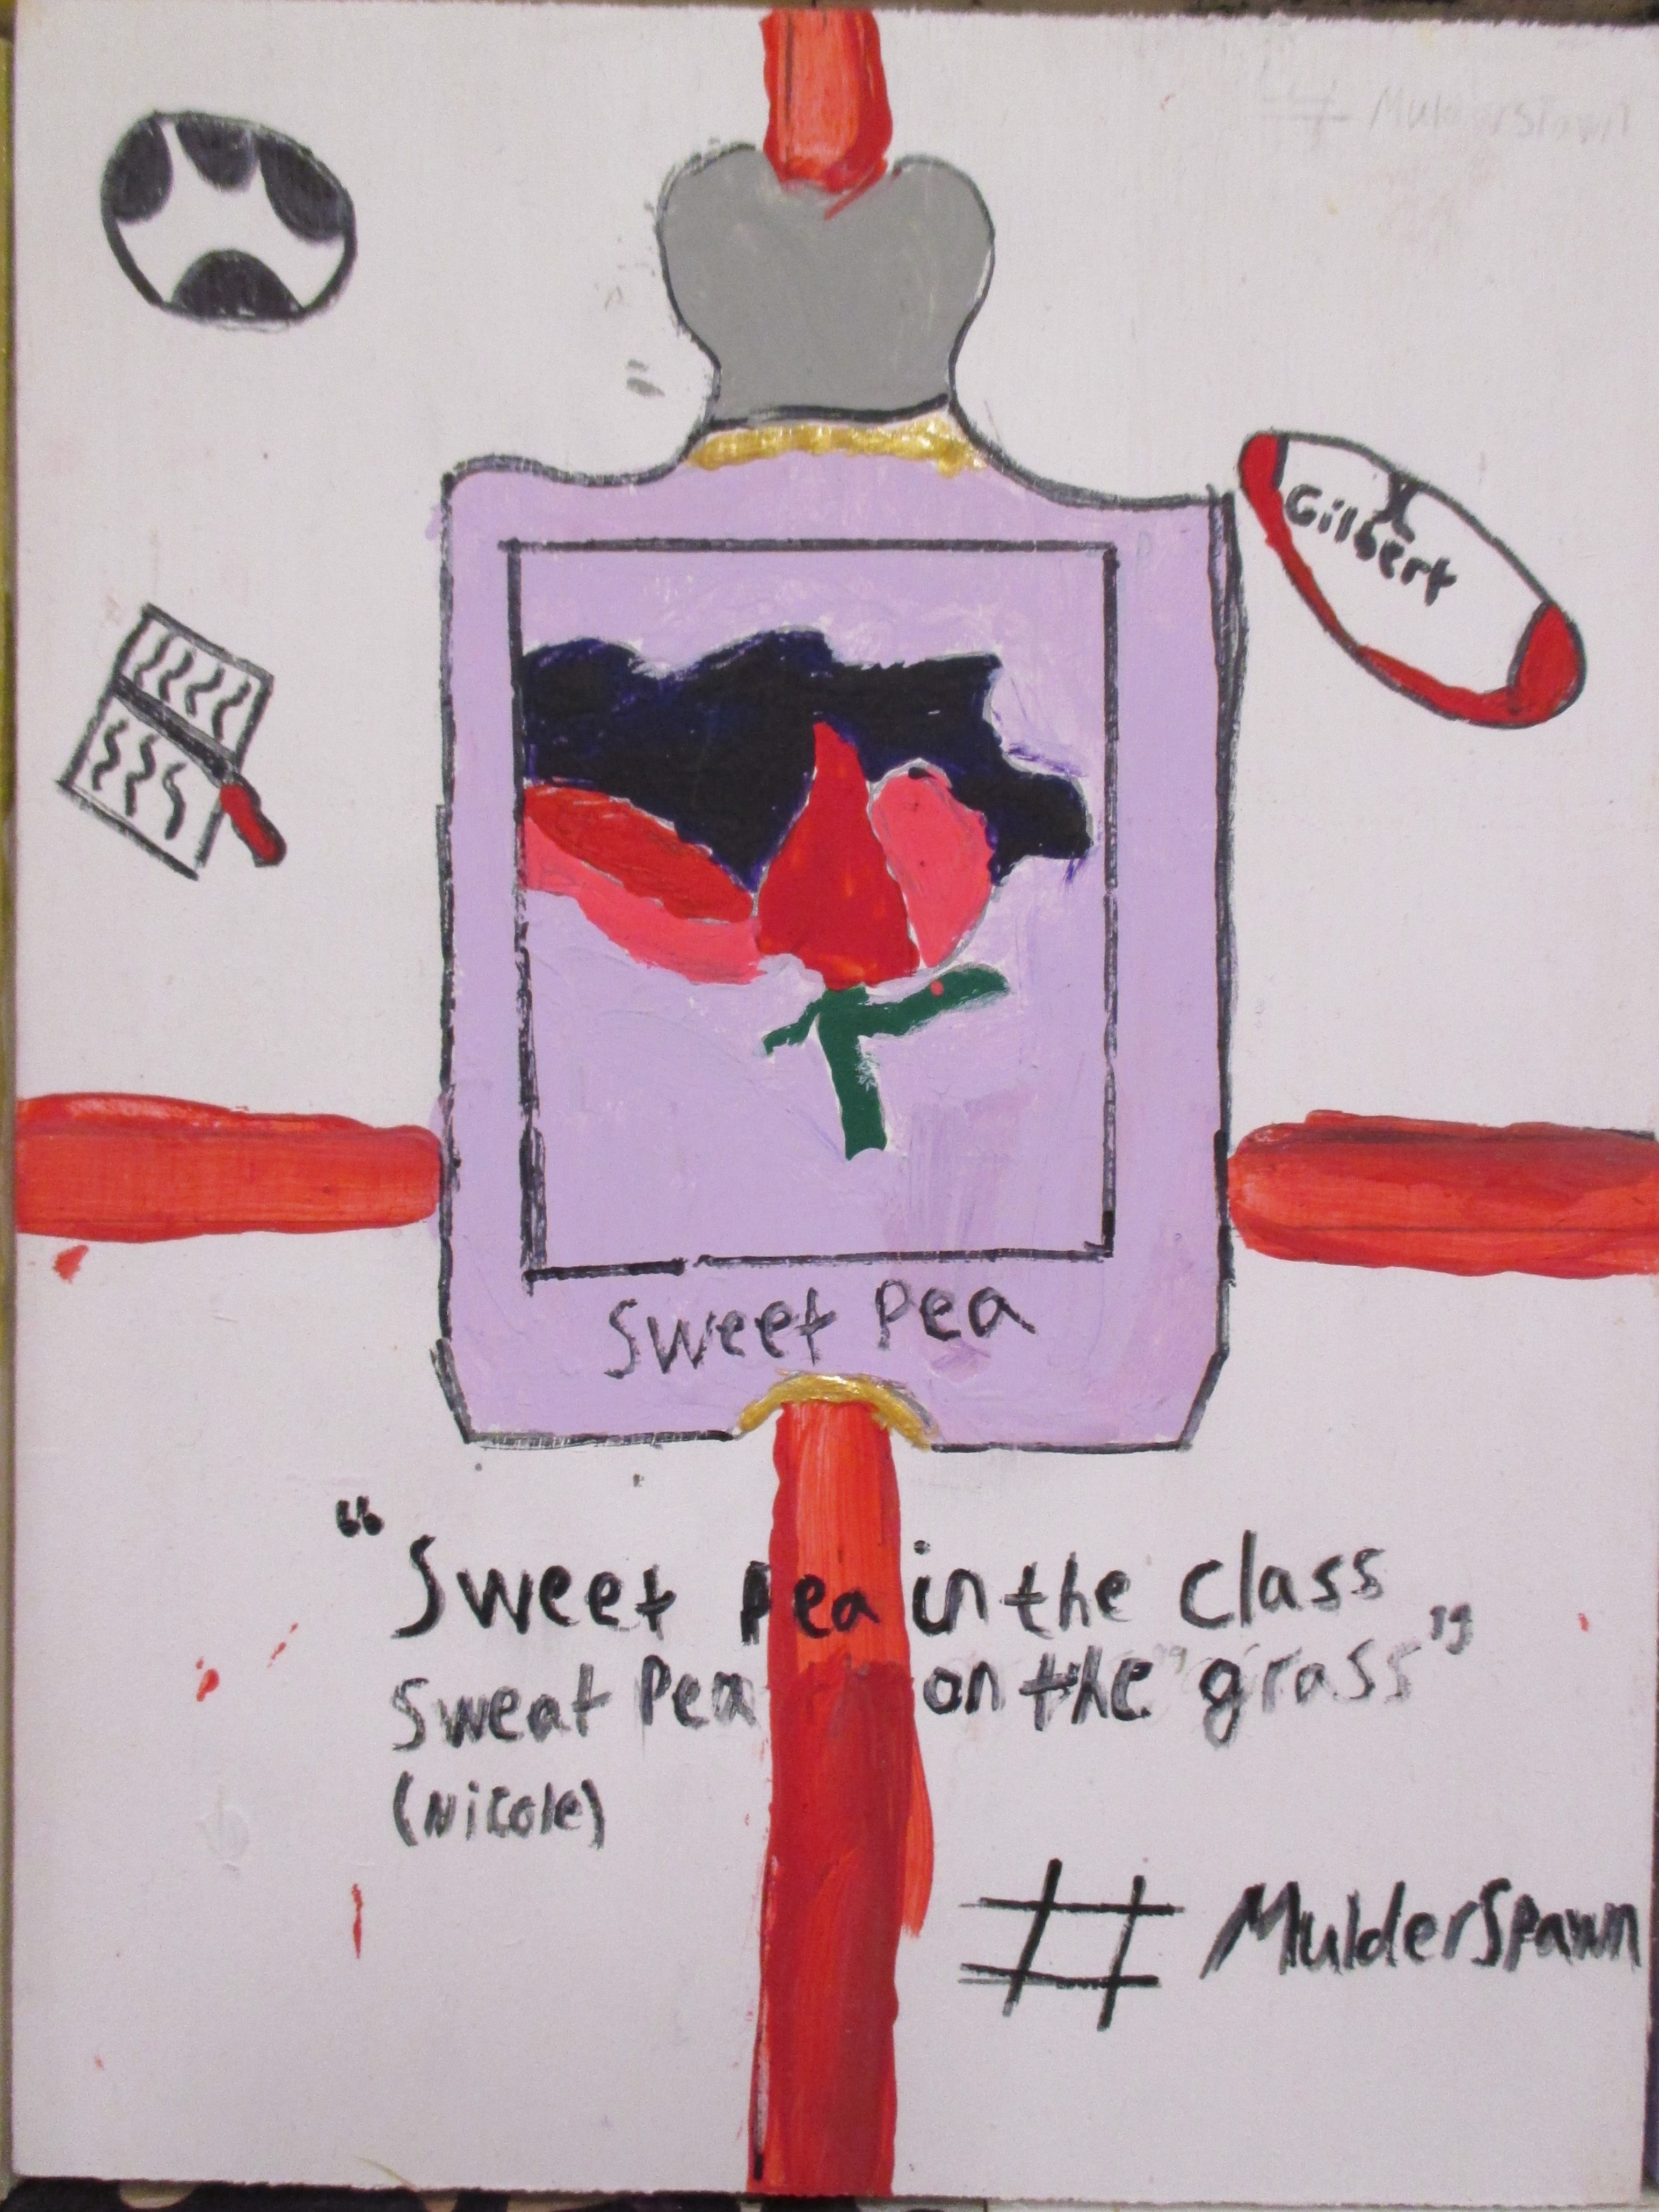 Gilbert
Sweet Pea
“Sweet pea in the class
Sweat Pea on the grass”
(Nicole)
# MulderSpawn